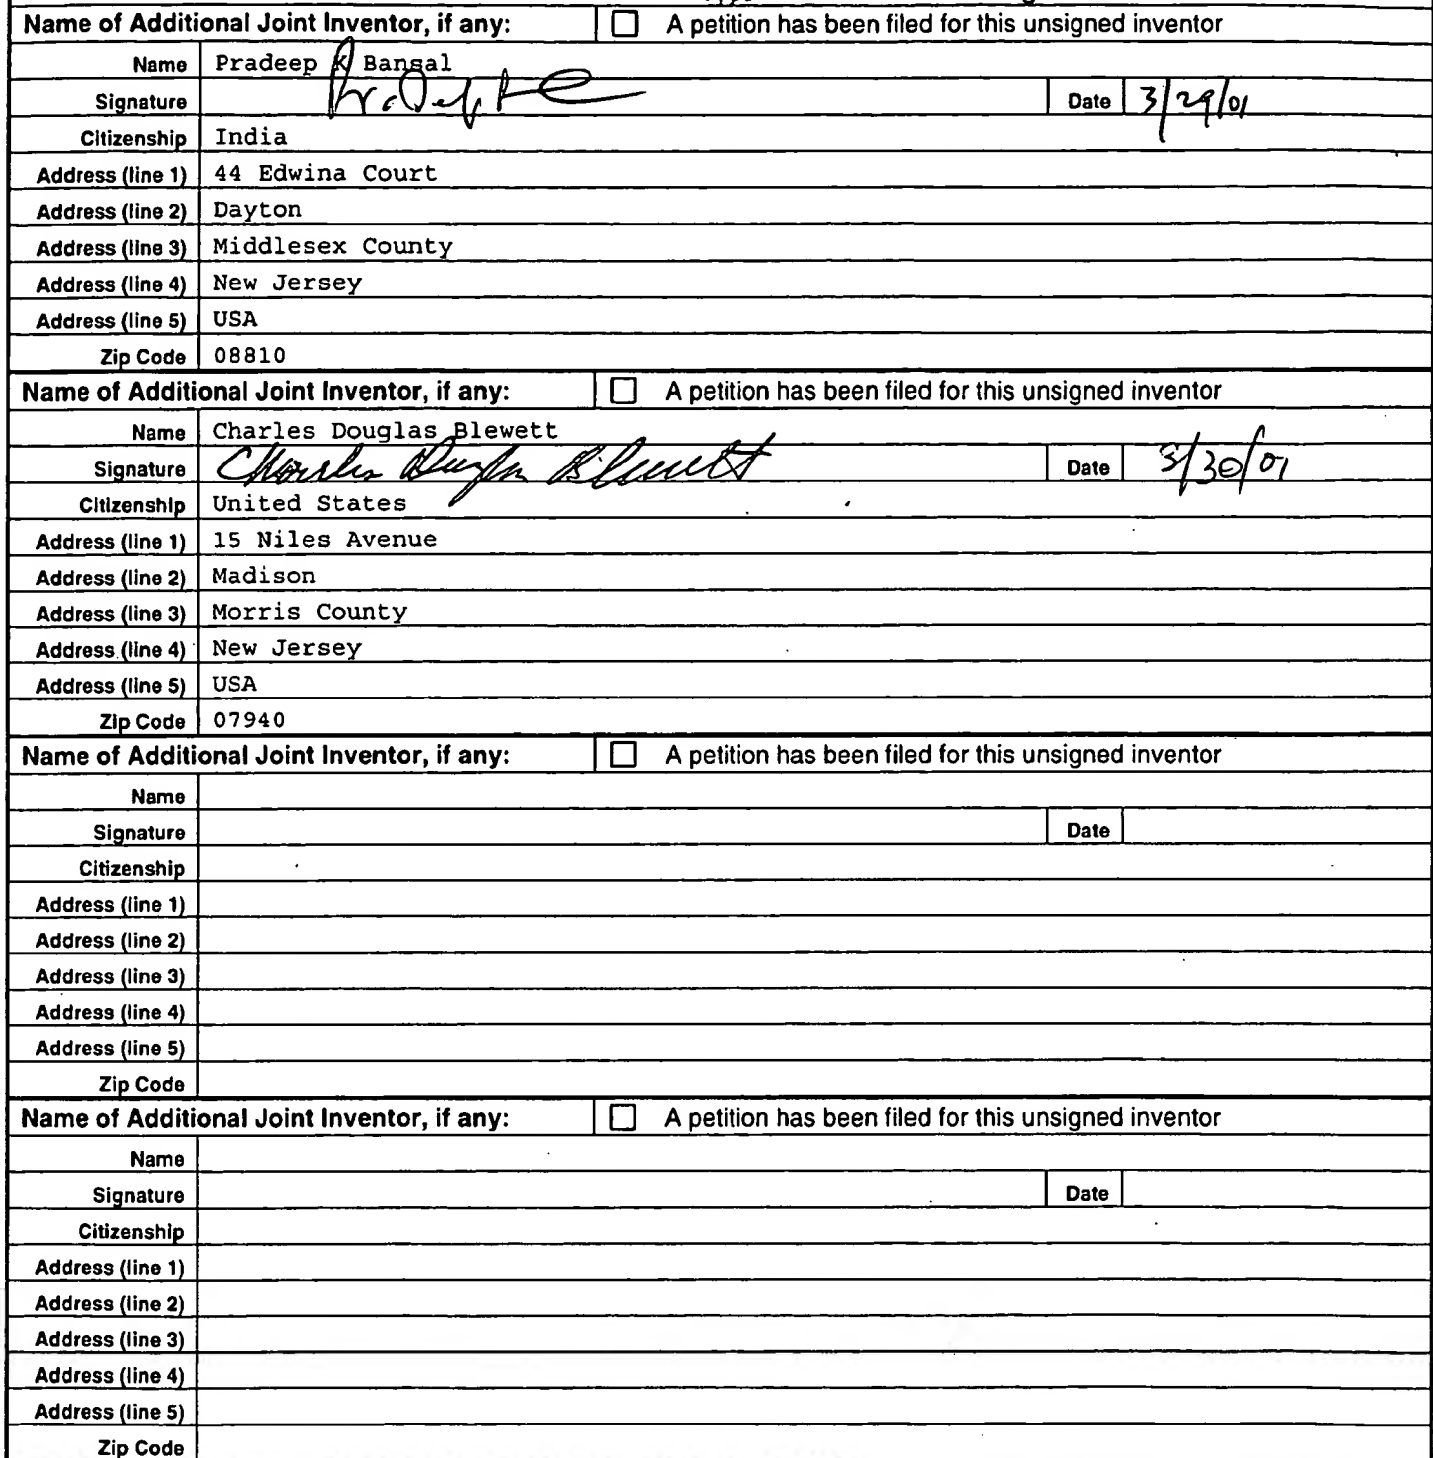 Name of Additional Joint Inventor, if any: A petition has been filed for this unsigned inventor
Name Pradeep K Bansal
Signature Date 3/29/01
Citizenship India
Address (line 1) 44 Edwina Court
Address (line 2) Dayton
Address (line 3) Middlesex County
Address (line 4) New Jersey
Address (line 5) USA
Zip Code 08810
Name of Additional Joint Inventor, if any: A petition has been filed for this unsigned inventor
Name Charles Douglas Blewett
Signature Charles Douglas Blewett Date 3/30/01
Citizenship United States
Address (line 1) 15 Niles Avenue
Address (line 2) Madison
Address (line 3) Morris County
Address (line 4) New Jersey
Address (line 5) USA
Zip Code 07940
Name of Additional Joint Inventor, if any: A petition has been filed for this unsigned inventor
Name
Signature Date
Citizenship
Address (line 1)
Address (line 2)
Address (line 3)
Address (line 4)
Address (line 5)
Zip Code
Name of Additional Joint Inventor, if any: A petition has been filed for this unsigned inventor
Name
Signature Date
Citizenship
Address (line 1)
Address (line 2)
Address (line 3)
Address (line 4)
Address (line 5)
Zip Code